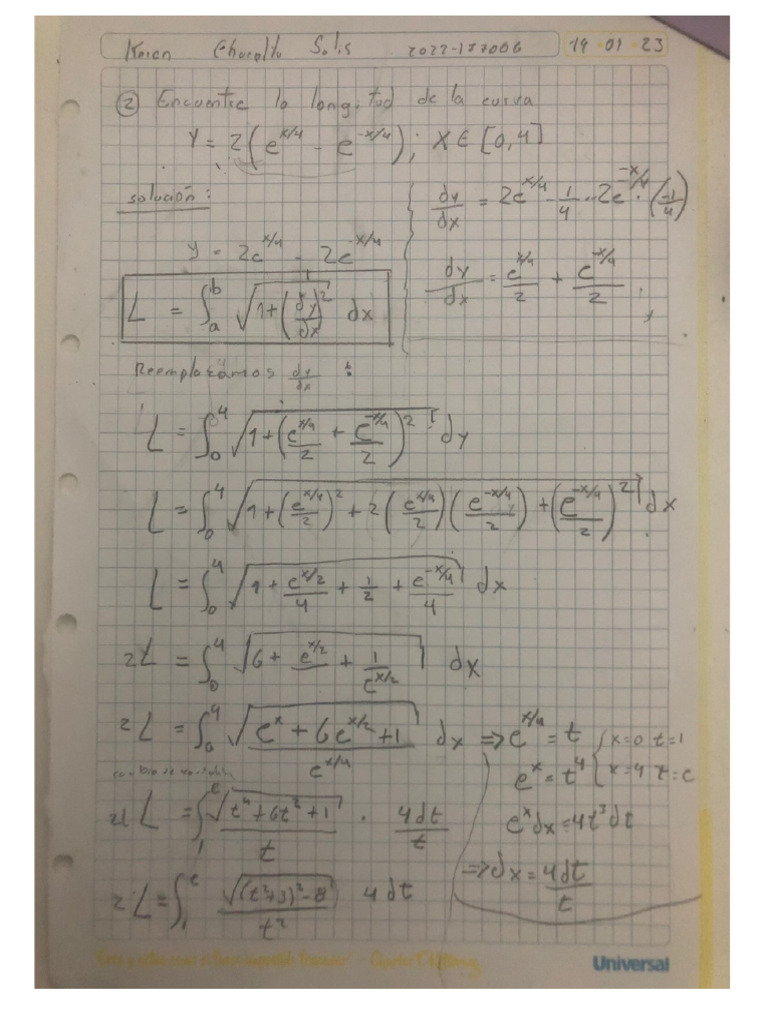 Karen Solis 2022-177006 14 01 23
② Encuentre la longitud de la curva
y = 2(e^{x/4} - e^{-x/4}); x ∈ [0,4]
solución:
y = 2e^{x/4} - 2e^{-x/4}
dy/dx = 2e^{x/4} · 1/4 - 2e^{-x/4} · (-1/4)
dy/dx = e^{x/4}/2 + e^{-x/4}/2 ;
L = ∫_a^b √(1+(dy/dx)^2) dx
Reemplazamos dy/dx :
L = ∫_0^4 √(1+(e^{x/4}/2 + e^{-x/4}/2)^2) dy
L = ∫_0^4 √(1+(e^{x/4}/2)^2 + 2(e^{x/4}/2)(e^{-x/4}/2) + (e^{-x/4}/2)^2) dx
L = ∫_0^4 √(1 + e^{x/2}/4 + 1/2 + e^{-x/4}/4) dx
2L = ∫_0^4 √(6 + e^{x/2} + 1/e^{x/2}) dx
2L = ∫_0^4 √(e^x + 6e^{x/2} + 1)/e^{x/4} dx ⇒ e^{x/4} = t { x=0 t=1
e^x = t^4 { x=4 t=e
cambio de variable
2L = ∫_1^e √(t^4 + 6t^2 + 1)/t · 4dt/t
e^x dx = 4t^3 dt
⇒ dx = 4dt/t
2L = ∫_1^e √((t^2+3)^2 - 8)/t^2 4dt
Universal